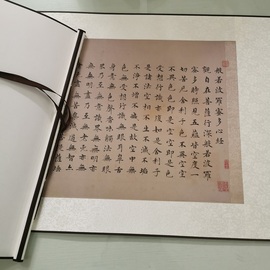 般若波羅蜜多心經
觀自在菩薩行深般若波羅
蜜多時照見五蘊皆空度一
切苦厄舍利子色不異空空
不異色色即是空空即是色
受想行識亦復如是舍利子
是諸法空相不生不滅不垢
不淨不增不減是故空中無
色無受想行識無眼耳鼻舌
身意無色聲香味觸法無眼
界乃至無意識界無無明亦
無無明盡乃至無老死亦